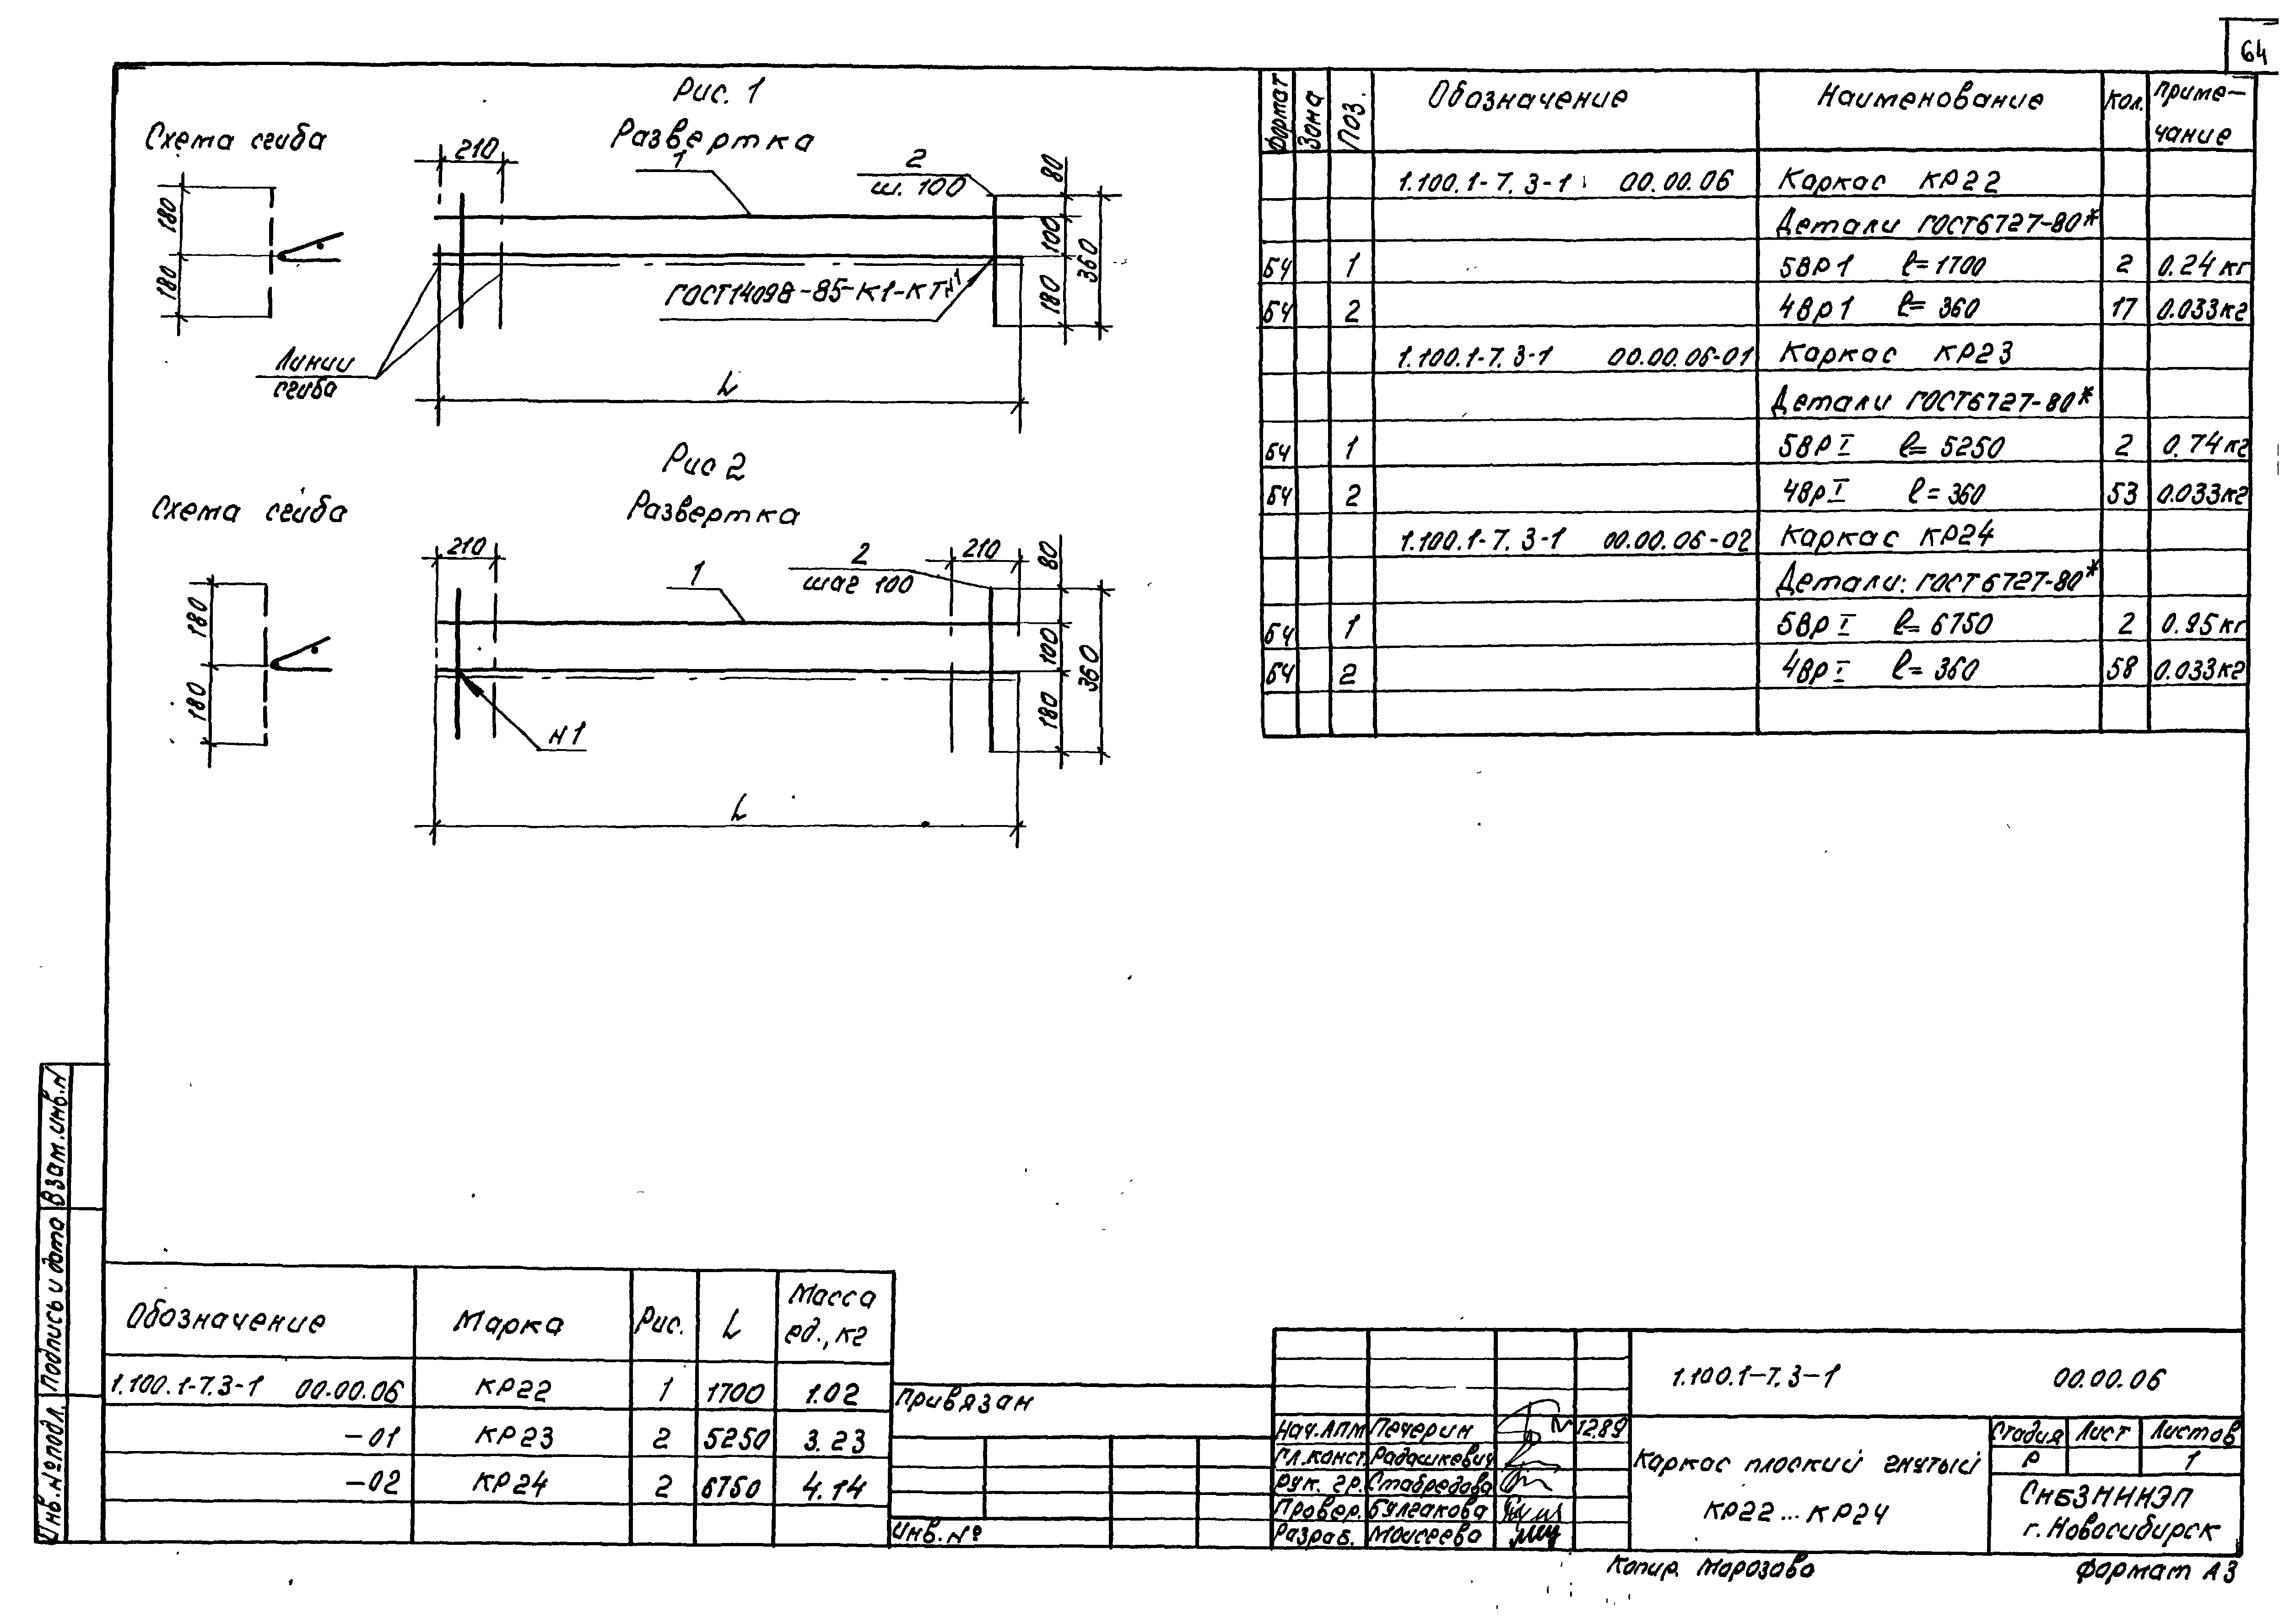 64
Рис. 1
Схема сгиба
Развертка
210
1
2
ш. 100
80
100
180
360
180
180
ГОСТ14098-85-К1-КТ
N1
Линии
сгиба
L
Рис 2
Схема сгиба
Развертка
210
1
2
шаг 100
210
80
100
180
360
180
180
N1
L
формат Зона Поз. Обозначение Наименование Кол. Приме-
чание
1.100.1-7.3-1 00.00.06 Каркас КР22
Детали ГОСТ6727-80*
БЧ 1 5Вр1 ℓ=1700 2 0.24кг
БЧ 2 4Вр1 ℓ=360 17 0.033кг
1.100.1-7.3-1 00.00.06-01 Каркас КР23
Детали ГОСТ6727-80*
БЧ 1 5ВрI ℓ=5250 2 0.74кг
БЧ 2 4ВрI ℓ=360 53 0.033кг
1.100.1-7.3-1 00.00.06-02 Каркас КР24
Детали: ГОСТ6727-80*
БЧ 1 5ВрI ℓ=6750 2 0.95кг
БЧ 2 4ВрI ℓ=360 58 0.033кг
Взам.инв.N
Подпись и дата
Инв.№подл.
Обозначение Марка Рис. L Масса
ед.,кг
1.100.1-7.3-1 00.00.06 КР22 1 1700 1.02
-01 КР23 2 5250 3.23
-02 КР24 2 6750 4.14
Привязан
Инв.№
1.100.1-7.3-1 00.00.06
Нач.АПМ Печерин 12.89
Гл.конст. Радашкевич
Рук. гр. Стабредова
Провер. Булгакова
Разраб. Моисеева
Каркас плоский гнутый
КР22...КР24
Стадия Лист Листов
Р 1
СибЗНИИЭП
г.Новосибирск
Копир. Морозова
Формат А3